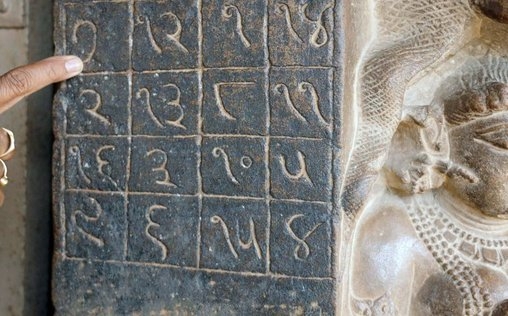 ७ १२ १ १४
२ १३ ८ ११
१६ ३ १० ५
९ ६ १५ ४